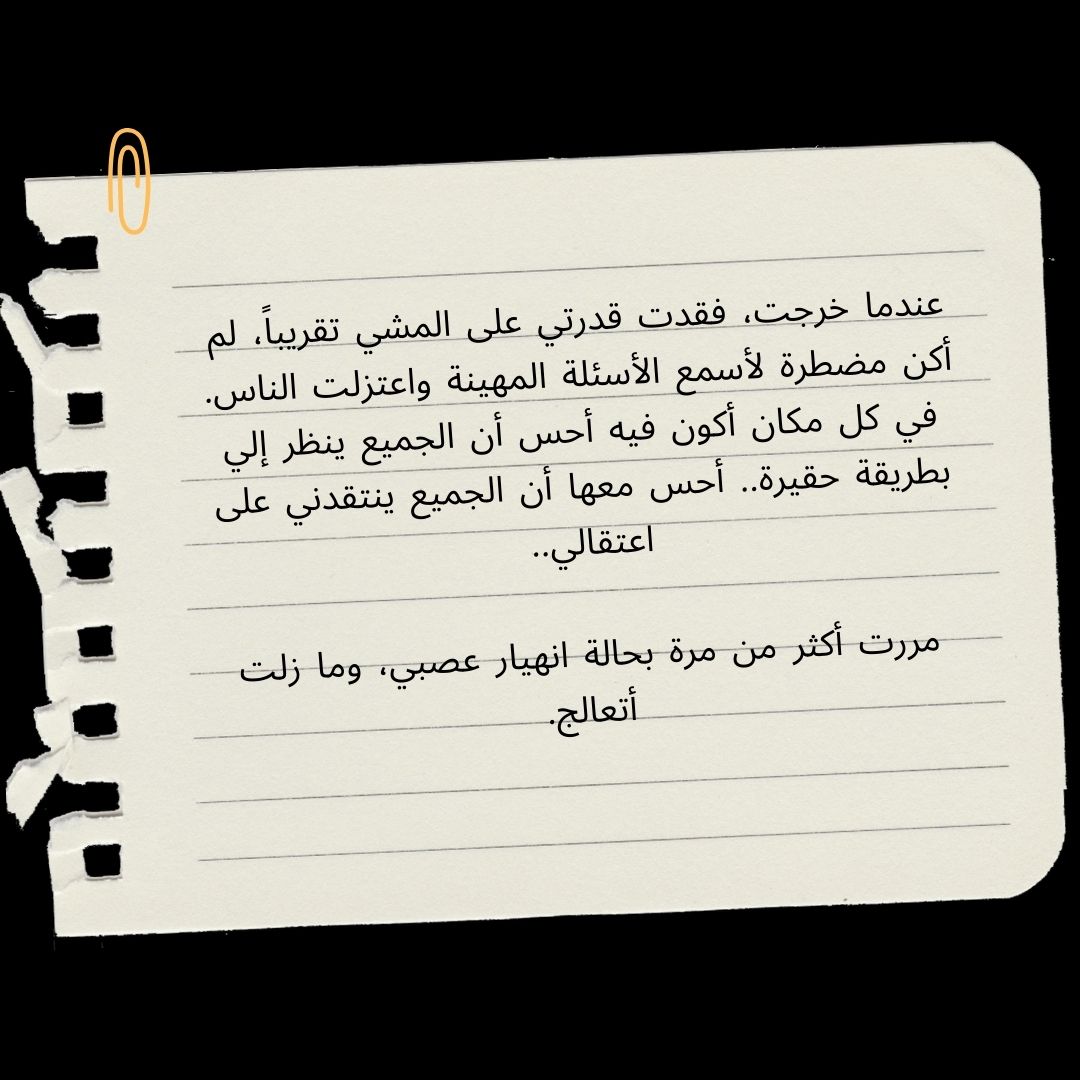 عندما خرجت، فقدت قدرتي على المشي تقريباً، لم
أكن مضطرة لأسمع الأسئلة المهينة واعتزلت الناس.
في كل مكان أكون فيه أحس أن الجميع ينظر إلي
بطريقة حقيرة.. أحس معها أن الجميع ينتقدني على
اعتقالي..
مررت أكثر من مرة بحالة انهيار عصبي، وما زلت
أتعالج.